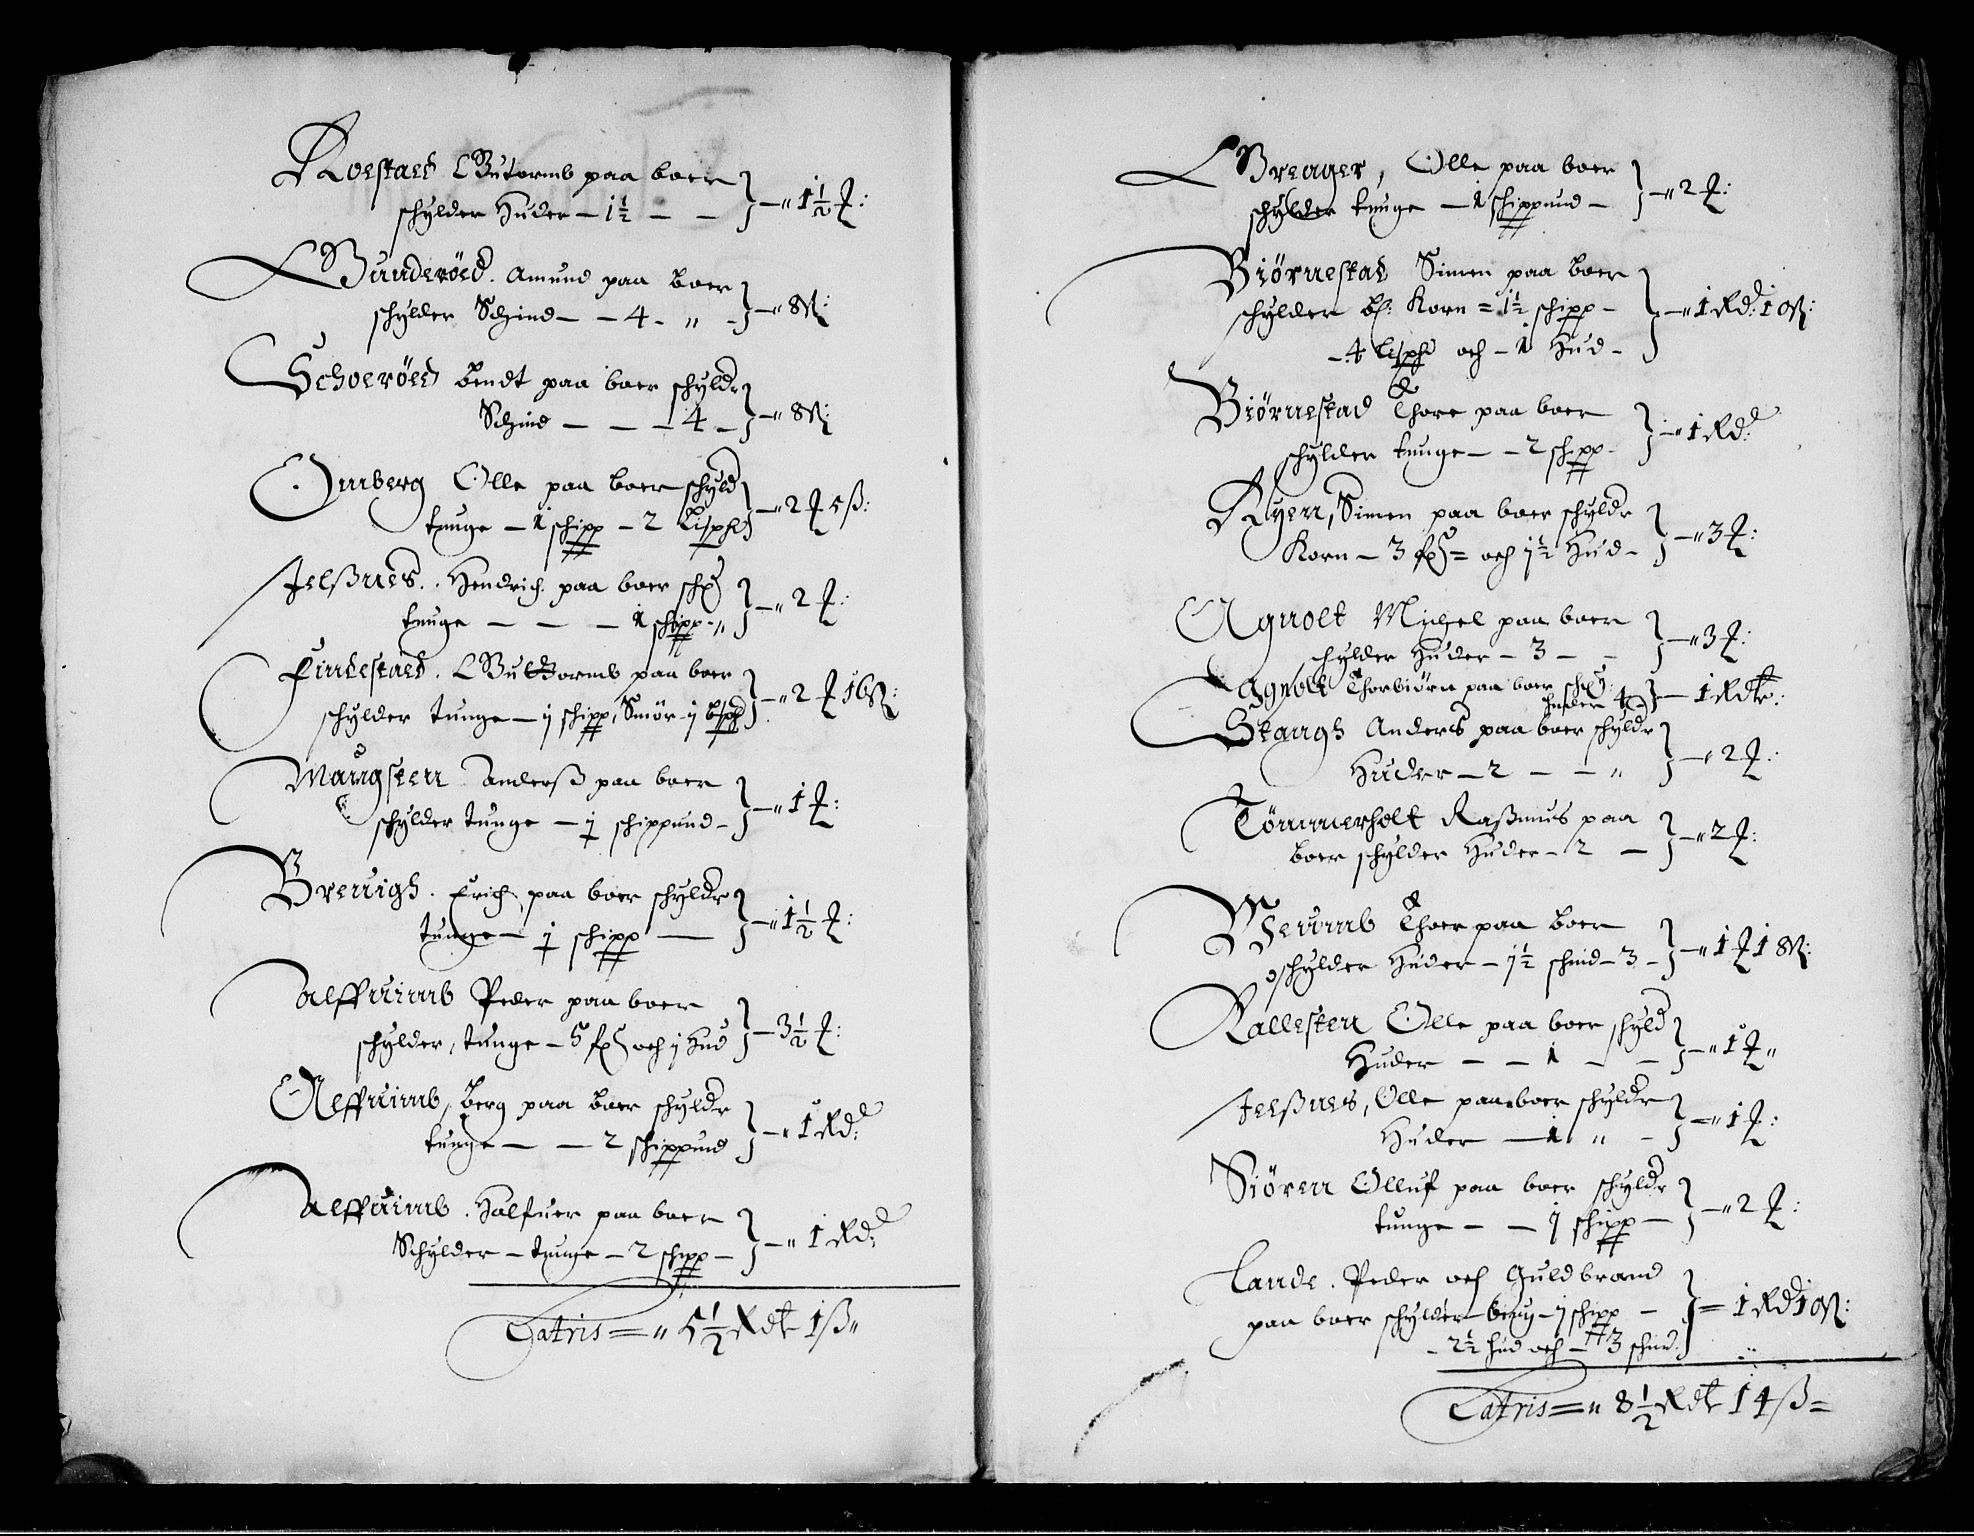 Roestaed Guttormb paa boer
schylder Huder – 1½ – – } – „ 1½ ₰:
Gunderöed. Amund paa boer
schylder Schind – – 4 – „ – } – „ 8 ß:
Schoeröed bendt paa boer schyldr
Schind – – – 4 – } – „ 8 ß:
Omberg Olle paa boer schyld
tunge – 1 schipp – 2 Lispd } – „ 2 ₰ 5 ß:
Jelßnes. Hendrich paa boer sch
tunge – – – 1 schipp – „ } – „ 2 ₰:
Findestaed. Guttormb paa boer
schylder tunge – j schipp, Smör – j bspd } – „ 2 ₰ 16 ß:
Maugsten Anderß paa boer
schylder tunge – j schippund – } – „ 1 ₰:
Breuigh. Erich paa boer schyldr
tunge – j schipp – } – „ 1½ ₰:
Alffuimb Peder paa boer
schylder, tunge – 5 och j Hud } – 3½ ₰:
Alffuimb, berg paa boer schyldr
tunge – – 2 schippund } – „ 1 Rd:
Alffuimb. Halfuer paa boer
Schylder – tunge – 2 schipp – } – „ 1 Rd:
Latris = „ 5½ Rdr 1 ß „
Breager, Olle paa boer
schylder tunge – 1 schippund – } – „ 2 ₰:
Biörnestad Simen paa boer
schylder bl: Korn = 1½ schipp –
– 4 Lispd och – 1 Hud – } – „ 1 Rd: 10 ß:
Biörnestad Thore paa boer
schylder tunge – – 2 schipp – } – „ 1 Rd:
Ryen, Simen paa boer schyldr
Korn – 3 = och j½ Hud – } – „ 3 ₰:
Agnolt Michel paa boer
schylder Huder – 3 – – } – „ 3 ₰:
Agnolt Thorbiörn paa boer schyl:
huder 4 } – 1 Rdr:
Stangh Anders paa boer schyldr
Huder – 2 – – „ } – „ 2 ₰:
Tömmerholt Raßmus paa
boer schylder Huder – 2 – } – „ 2 ₰:
Thoer paa boer
schylder Huder – j½ schind – 3 – } – „ 1 ₰ 18 ß:
Kallesten Olle paa boer schyld
Huder – – 1 – – } – „ 1 ₰ „
Jelßnes, Olle paa boer schyldr
Huder – 1 „ – } = „ 1 ₰:
Siören Olluf paa boer schyldr
tunge – – j schipp – } – „ 2 ₰:
Lande. Peder och Guldbrand
paa boer schylder – – j schipp –
– 2½ hud och – 3 schin: } = 1 Rd 10 ß:
Latris = „ 8½ Rdr 14 ß =